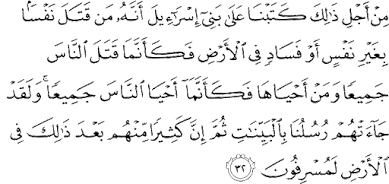 مِنْ أَجْلِ ذَٰلِكَ كَتَبْنَا عَلَىٰ بَنِىٓ إِسْرَٰٓءِيلَ أَنَّهُۥ مَن قَتَلَ نَفْسًۢا
بِغَيْرِ نَفْسٍ أَوْ فَسَادٍ فِى ٱلْأَرْضِ فَكَأَنَّمَا قَتَلَ ٱلنَّاسَ
جَمِيعًا وَمَنْ أَحْيَاهَا فَكَأَنَّمَآ أَحْيَا ٱلنَّاسَ جَمِيعًا ۚ وَلَقَدْ
جَآءَتْهُمْ رُسُلُنَا بِٱلْبَيِّنَٰتِ ثُمَّ إِنَّ كَثِيرًا مِّنْهُم بَعْدَ ذَٰلِكَ فِى
ٱلْأَرْضِ لَمُسْرِفُونَ ٣٢